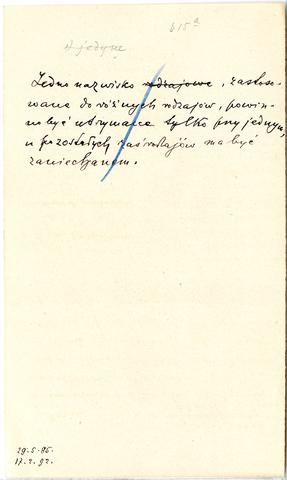 615a
Jedno nazwisko rdzajowe, zastoso-
wane do różnych rdzajów, powin-
no być utrzymane tylko przy jednym,
u pozostałych zaś rdzajów ma być
zaniechanem.
29.5.85.
17.2.92.